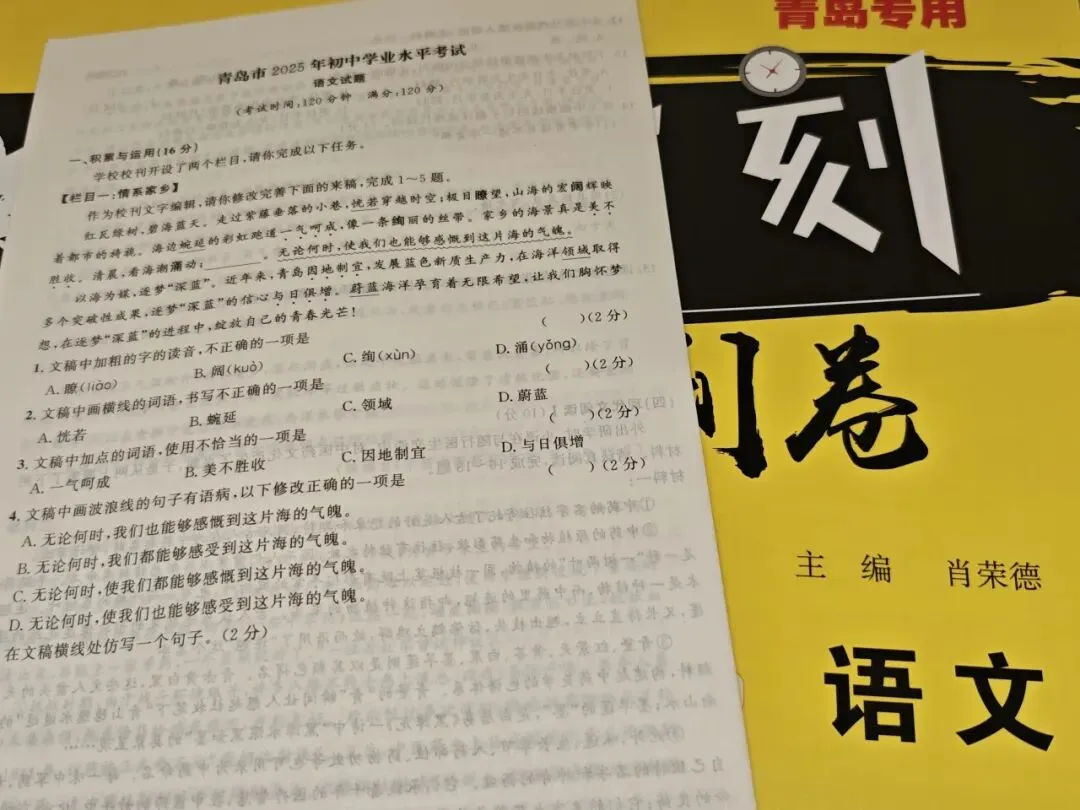 青岛市 2025 年初中学业水平考试
语文试题
(考试时间:120 分钟 满分:120 分)
一、积累与运用(16 分)
学校校刊开设了两个栏目,请你完成以下任务。
【栏目一:情系家乡】
作为校刊文字编辑,请你修改完善下面的来稿,完成 1~5 题。
红瓦绿树,碧海蓝天。走过紫藤垂落的小巷,恍若穿越时空;极目瞭望,山海的宏阔辉映
着都市的绮貌。海边蜿延的彩虹跑道一气呵成,像一条绚丽的丝带。家乡的海景真是美不
胜收。清晨,看海潮涌动;______。无论何时,使我们也能够感慨到这片海的气魄。
以海为媒,逐梦“深蓝”。近年来,青岛因地制宜,发展蓝色新质生产力,在海洋领域取得
多个突破性成果,逐梦“深蓝”的信心与日俱增。蔚蓝海洋孕育着无限希望,让我们胸怀梦
想,在逐梦“深蓝”的进程中,绽放自己的青春光芒!
1. 文稿中加粗的字的读音,不正确的一项是 ( )(2 分)
A. 瞭(liào) B. 阔(kuò) C. 绚(xùn) D. 涌(yǒng)
2. 文稿中画横线的词语,书写不正确的一项是 ( )(2 分)
A. 恍若 B. 蜿延 C. 领域 D. 蔚蓝
3. 文稿中加点的词语,使用不恰当的一项是 ( )(2 分)
A. 一气呵成 B. 美不胜收 C. 因地制宜 D. 与日俱增
4. 文稿中画波浪线的句子有语病,以下修改正确的一项是 ( )(2 分)
A. 无论何时,我们也能够感慨到这片海的气魄。
B. 无论何时,我们都能够感受到这片海的气魄。
C. 无论何时,使我们都能够感慨到这片海的气魄。
D. 无论何时,使我们也能够感受到这片海的气魄。
在文稿横线处仿写一个句子。(2 分)
青岛专用
刻
卷
主 编 肖荣德
语文